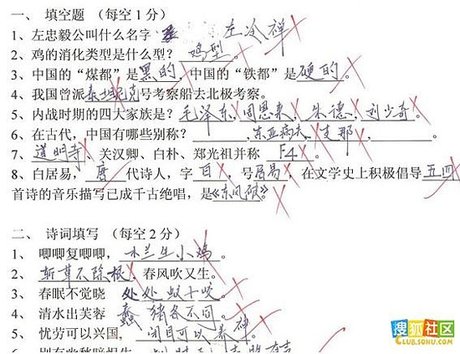 一、填空题 (每空1分)
1、左忠毅公叫什么名字 左冷禅
2、鸡的消化类型是什么型? 鸡型。
3、中国的“煤都”是黑的,中国的“铁都”是硬的。
4、我国曾派泰坦尼克号考察船去北极考察。
5、内战时期的四大家族是? 毛泽东,周恩来,朱德,刘少奇。
6、在古代,中国有哪些别称? ,东亚病夫,支那,
7、道明寺、关汉卿、白朴、郑光祖并称「4。
8、白居易,唐代诗人,字 号居易,在文学史上积极倡导五四
首诗的音乐描写已成千古绝唱,是《东风破》
二、诗词填写 (每空2分)
1、唧唧复唧唧,木兰生小鸡。
2、斩草不除根,春风吹又生。
3、春眠不觉晓 处处蚊子咬。
4、清水出芙蓉 各不同。
5、忧劳可以兴国,闭目可以养神
搜狐社区
CLUB.SOHU.COM